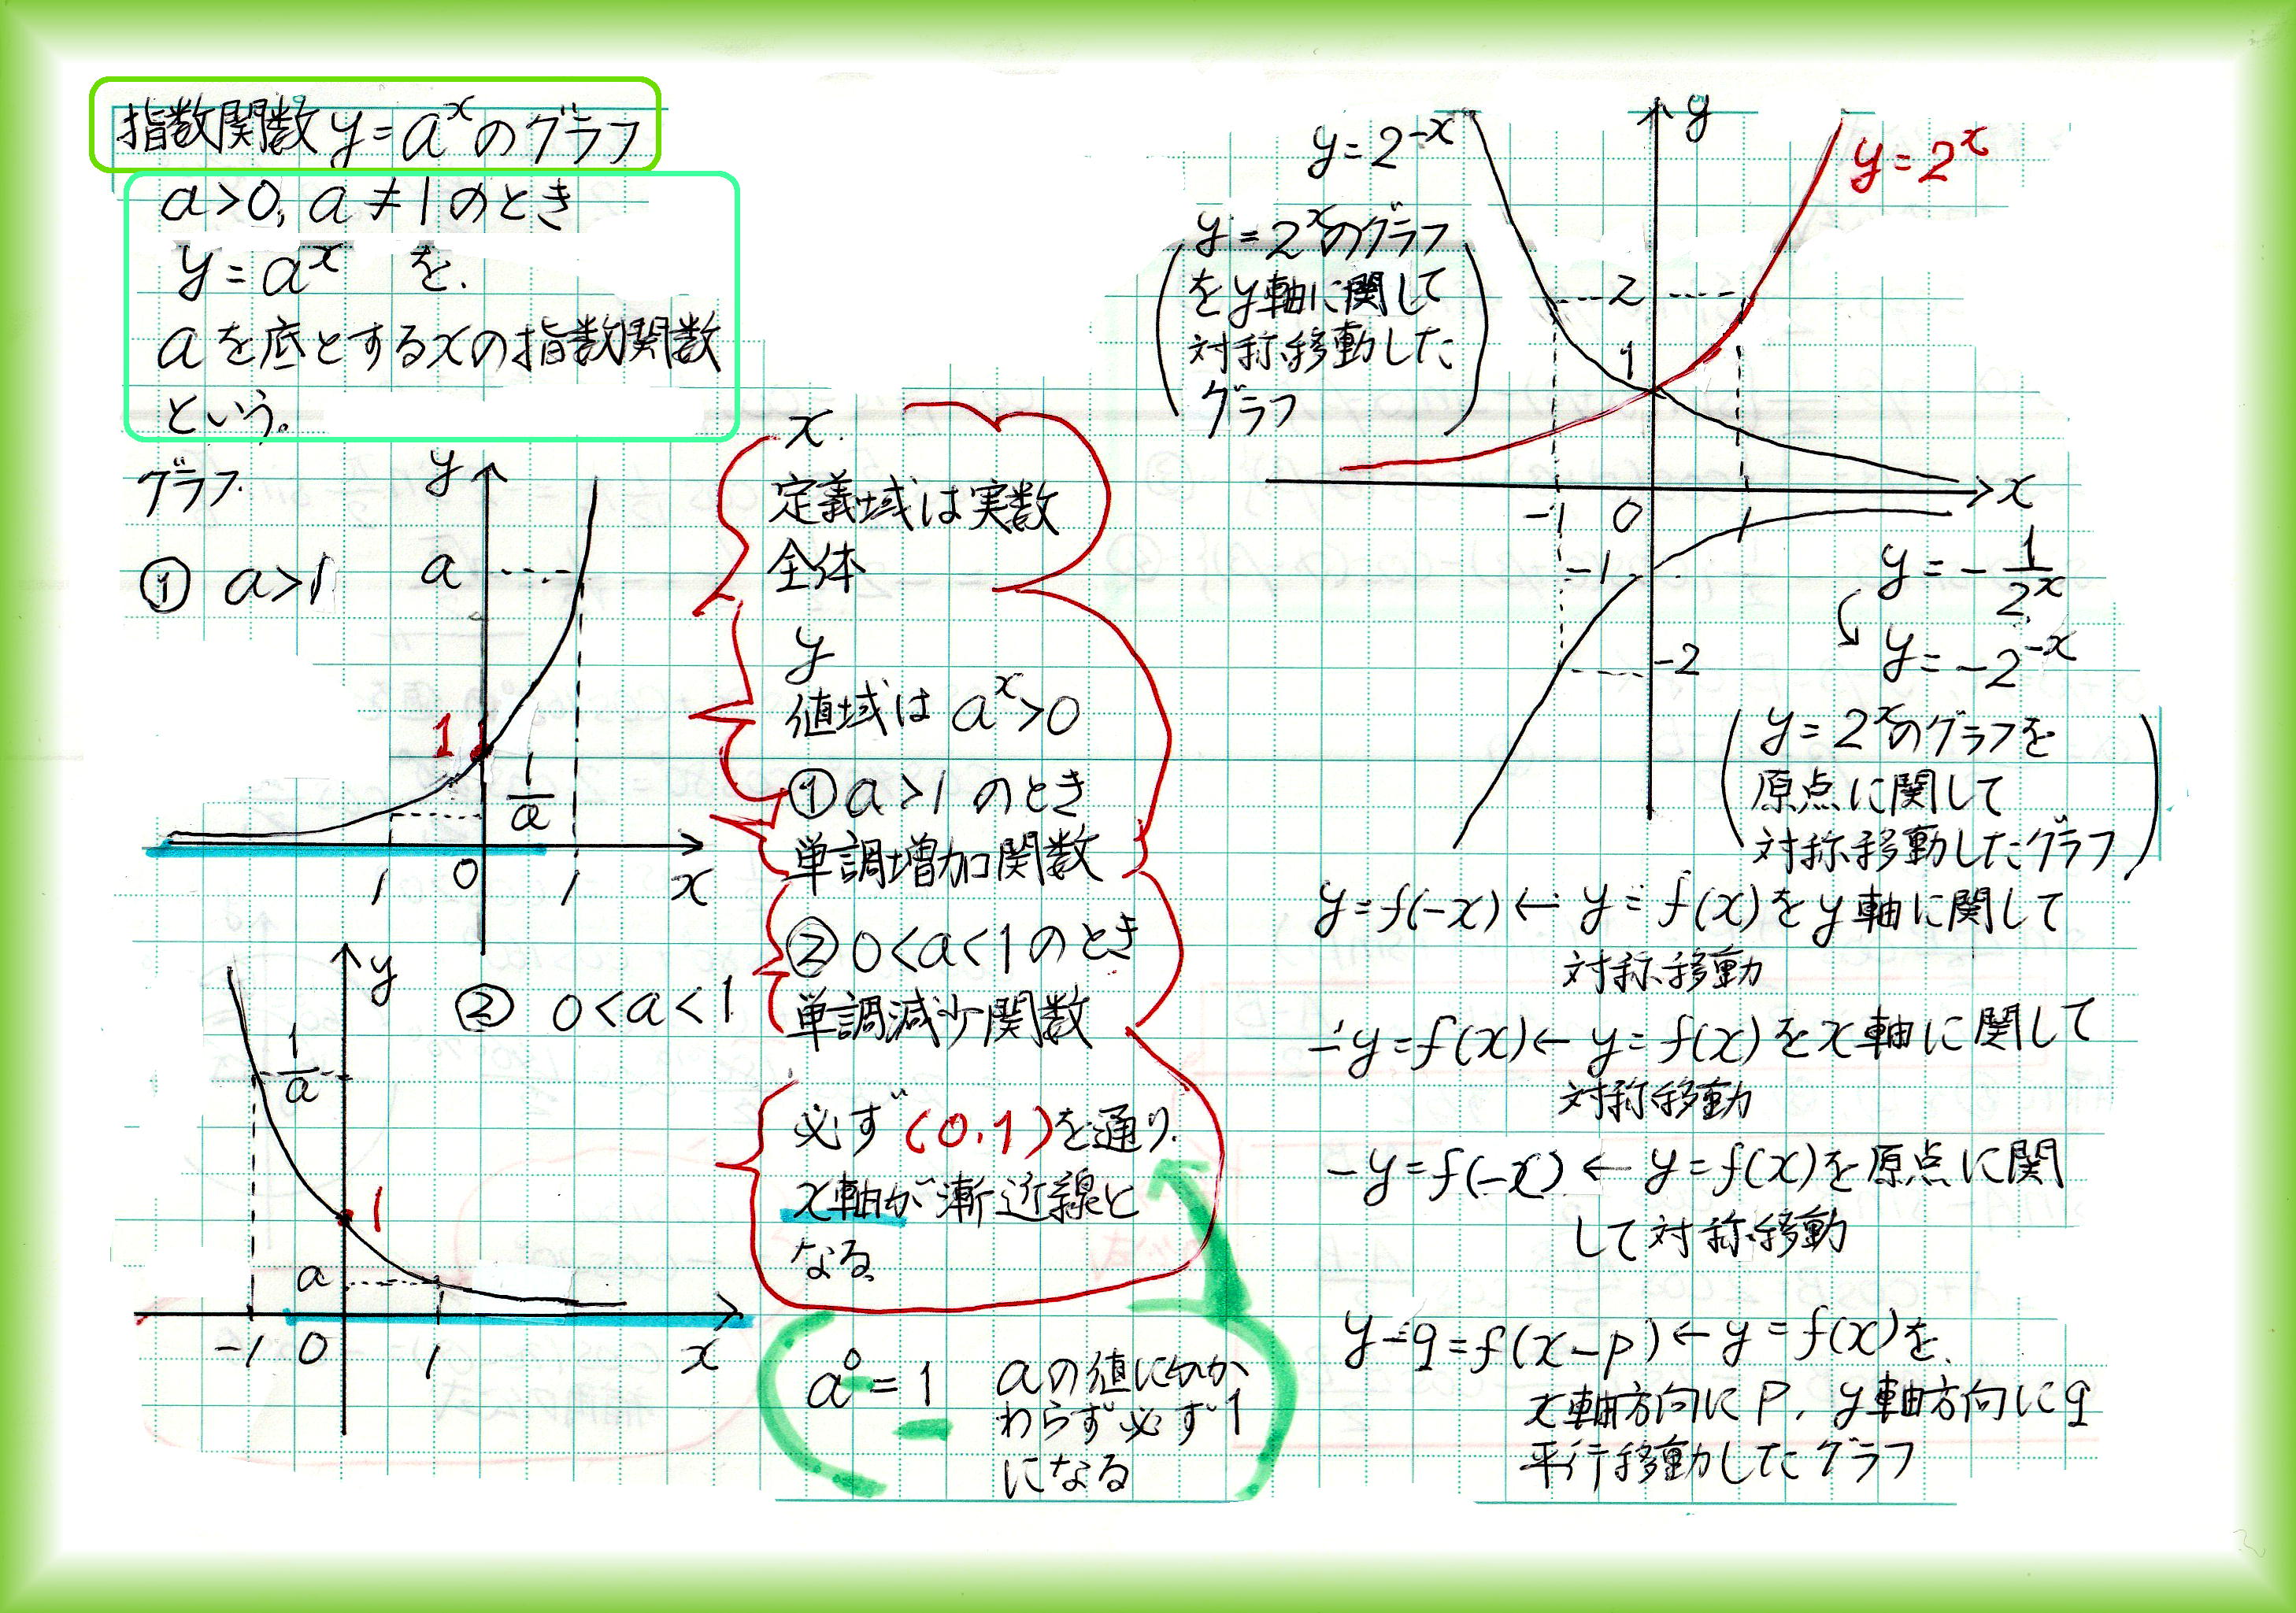 指数関数 y=a^xのグラフ
a>0, a≠1のとき
y=a^x を.
aを底とするxの指数関数
という。
グラフ
① a>1
y
a
1
1/a
1
0
1
x
② 0<a<1
y
1/a
1
a
-1
0
1
x
x
定義域は実数
全体
y
値域は a^x>0
①a>1のとき
単調増加関数
②0<a<1のとき
単調減少関数
必ず(0.1)を通り
x軸が漸近線と
なる
a^0=1
aの値にかか
わらず必ず1
になる
y=2^-x
(y=2^xのグラフ
をy軸に関して
対称移動した
グラフ)
y
y=2^x
2
1
-1
0
1
x
-1
-2
y=-1/2^x
y=-2^-x
(y=2^xのグラフを
原点に関して
対称移動したグラフ)
y=f(-x)←y=f(x)をy軸に関して
対称移動
-y=f(x)←y=f(x)をx軸に関して
対称移動
-y=f(-x)←y=f(x)を原点に関
して対称移動
y-q=f(x-p)←y=f(x)を
x軸方向にp, y軸方向にq
平行移動したグラフ